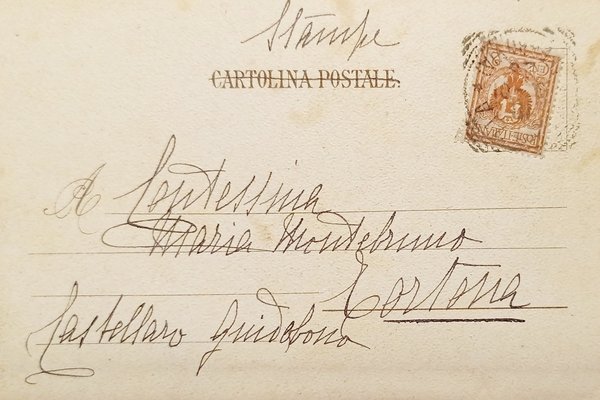 Stampe
CARTOLINA POSTALE.
A Contessina
Maria Montebruno
Tortona
Castellaro Guidobono